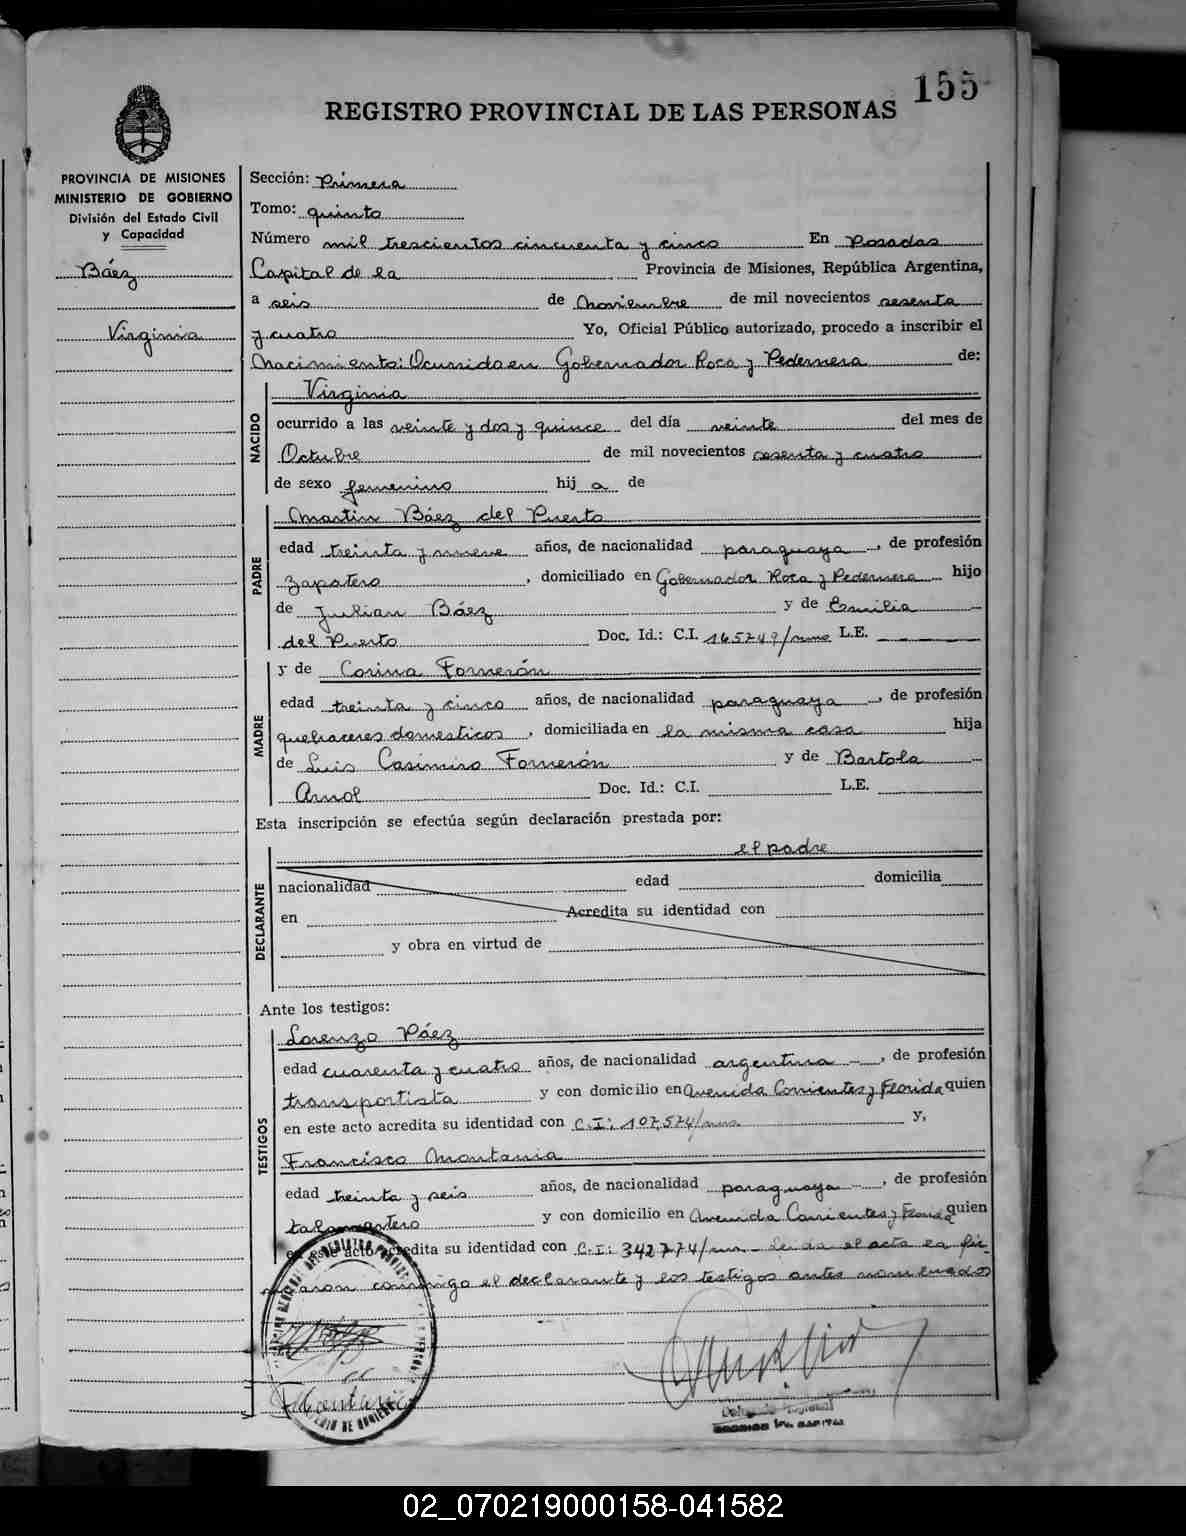 155
REGISTRO PROVINCIAL DE LAS PERSONAS
PROVINCIA DE MISIONES
MINISTERIO DE GOBIERNO
División del Estado Civil
y Capacidad
Báez
Virginia
Sección: Primera
Tomo: quinto
Número mil trescientos cincuenta y cinco En Posadas
Capital de la Provincia de Misiones, República Argentina,
a seis de Noviembre de mil novecientos sesenta
y cuatro Yo, Oficial Público autorizado, procedo a inscribir el
Nacimiento: Ocurrido en Gobernador Roca y Pedernera de:
NACIDO
Virginia
ocurrido a las veinte y dos y quince del día veinte del mes de
Octubre de mil novecientos sesenta y cuatro
de sexo femenino hij a de
PADRE
Martin Báez del Puerto
edad treinta y nueve años, de nacionalidad paraguaya, de profesión
zapatero, domiciliado en Gobernador Roca y Pedernera hijo
de Julian Báez y de Emilia
del Puerto Doc. Id.: C.I. 165249/mnes L.E.
MADRE
y de Corina Fornerón
edad treinta y cinco años, de nacionalidad paraguaya, de profesión
quehaceres domesticos, domiciliada en la misma casa hija
de Luis Casimiro Fornerón y de Bartola
Arnol Doc. Id.: C.I. L.E.
Esta inscripción se efectúa según declaración prestada por:
DECLARANTE
el padre
nacionalidad edad domicilia
en Acredita su identidad con
y obra en virtud de
Ante los testigos:
TESTIGOS
Lorenzo Páez
edad cuarenta y cuatro años, de nacionalidad argentina, de profesión
transportista y con domicilio en Avenida Corrientes y Florida quien
en este acto acredita su identidad con C.I: 107,574/mnes y,
Francisco Montania
edad treinta y seis años, de nacionalidad paraguaya, de profesión
y con domicilio en Avenida Corrientes y Florida quien
en este acto acredita su identidad con C.I: 342774/mns Leida el acta la fir-
maron conmigo el declarante y los testigos antes nombrados
F Montania
SECCION 1ra. CAPITAL
02_070219000158-041582